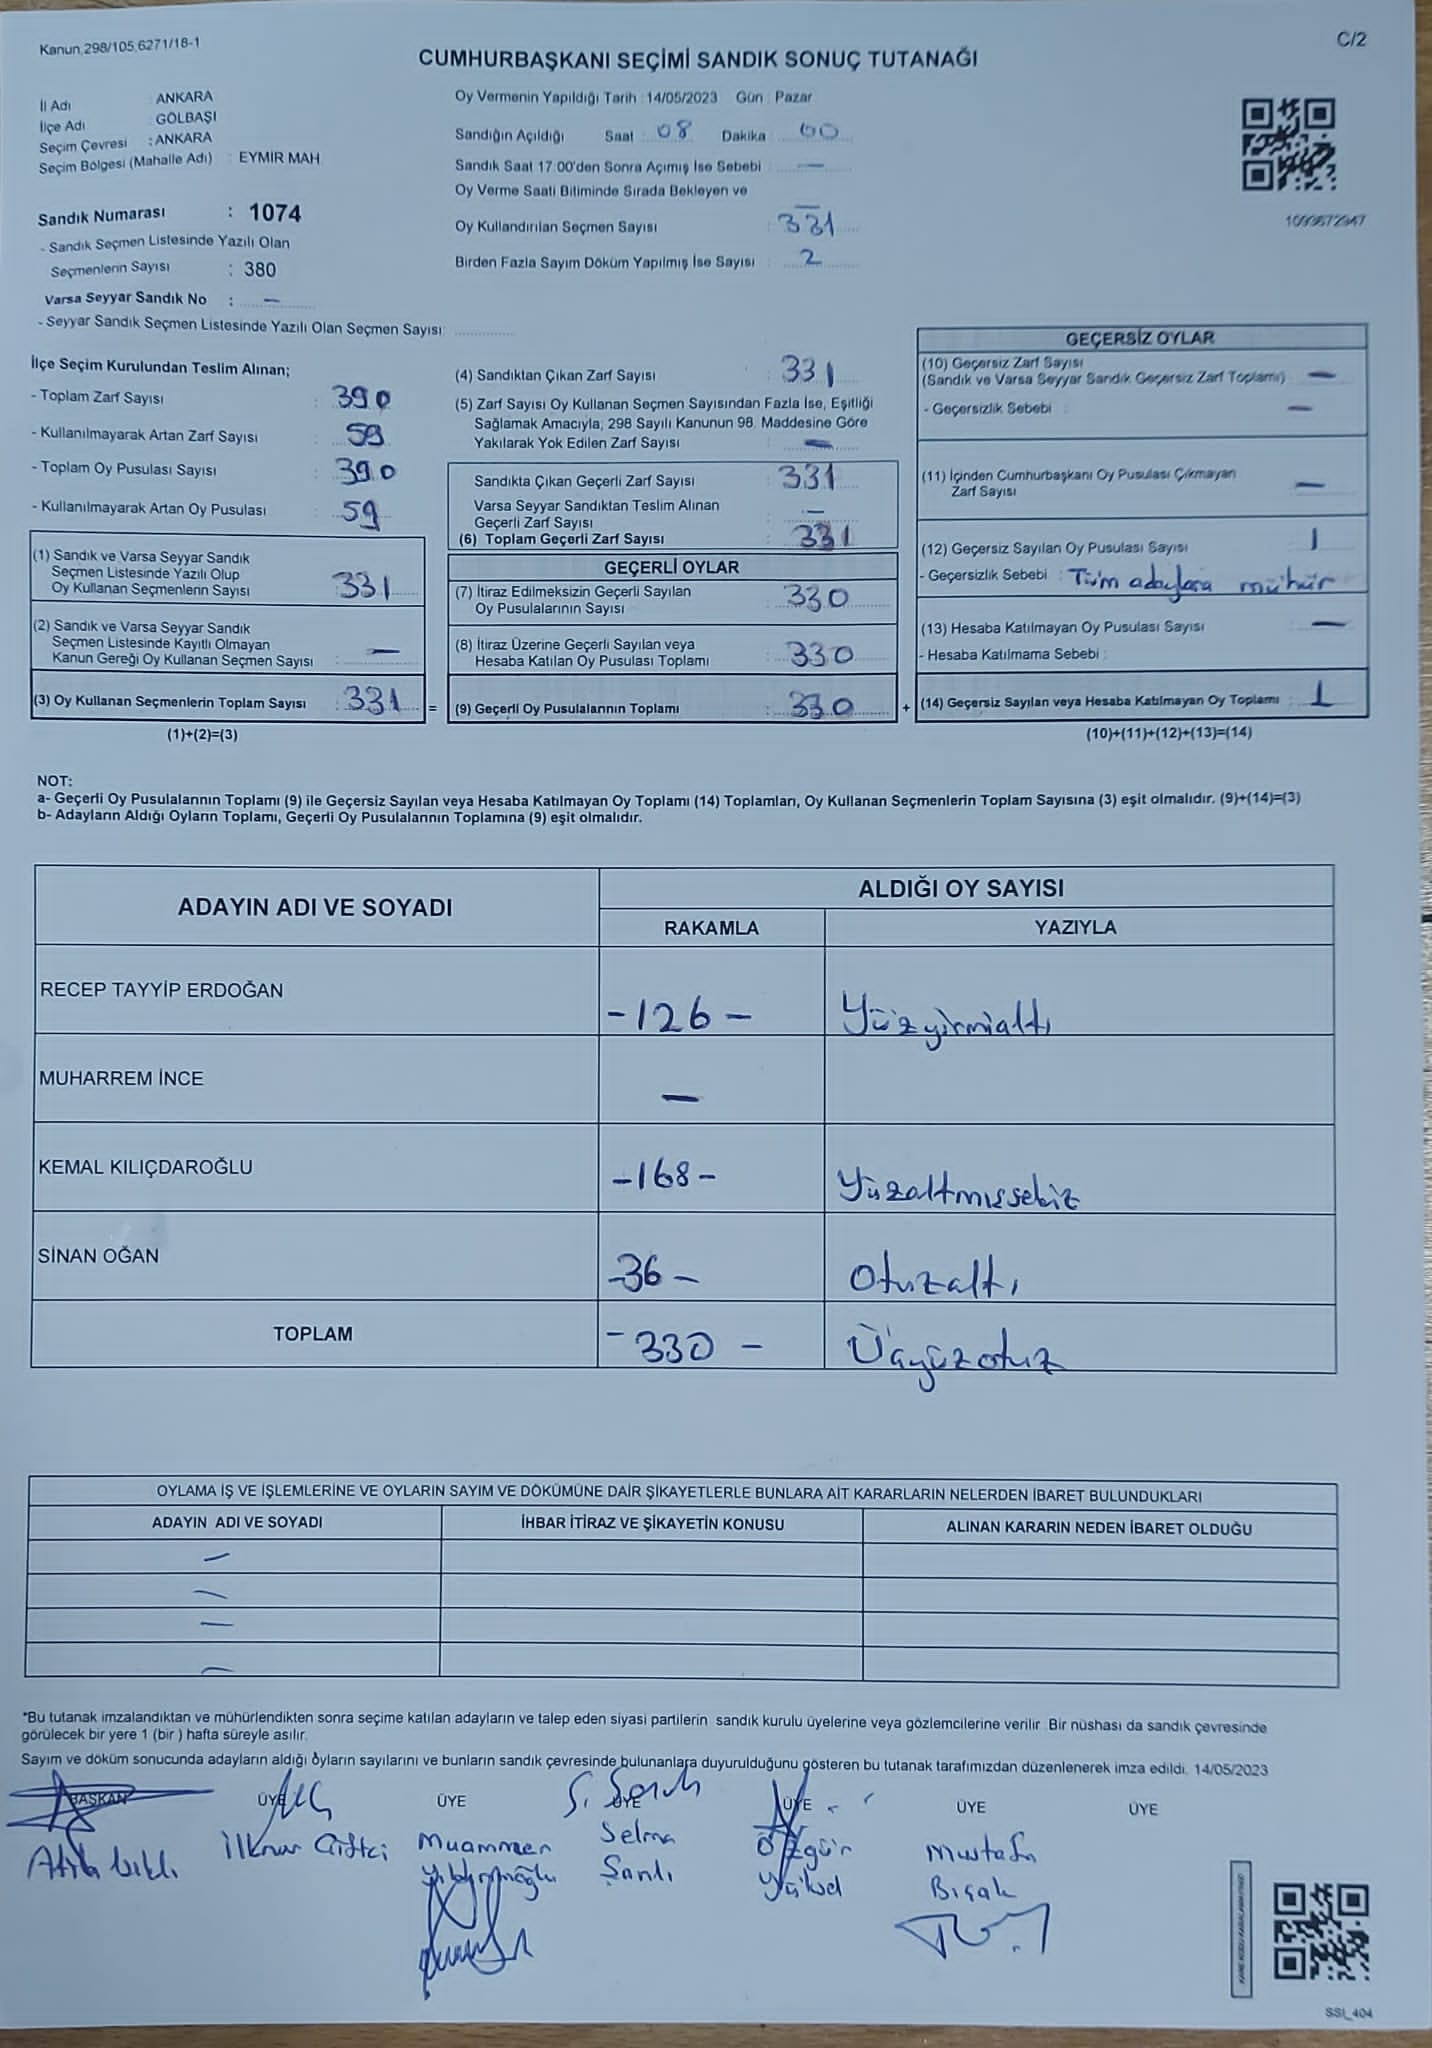 Kanun.298/105,6271/18-1
C/2
CUMHURBAŞKANI SEÇİMİ SANDIK SONUÇ TUTANAĞI
İl Adı : ANKARA
İlçe Adı : GÖLBAŞI
Seçim Çevresi : ANKARA
Seçim Bölgesi (Mahalle Adı) : EYMİR MAH.
Oy Vermenin Yapıldığı Tarih : 14/05/2023 Gün : Pazar
Sandığın Açıldığı Saat : 08 Dakika : 00
Sandık Saat 17:00'den Sonra Açımış İse Sebebi : —
Oy Verme Saati Bitiminde Sırada Bekleyen ve
Oy Kullandırılan Seçmen Sayısı : 331
Birden Fazla Sayım Döküm Yapılmış İse Sayısı : 2
Sandık Numarası : 1074
- Sandık Seçmen Listesinde Yazılı Olan
Seçmenlerin Sayısı : 380
Varsa Seyyar Sandık No : —
- Seyyar Sandık Seçmen Listesinde Yazılı Olan Seçmen Sayısı:
İlçe Seçim Kurulundan Teslim Alınan;
- Toplam Zarf Sayısı : 390
- Kullanılmayarak Artan Zarf Sayısı : 59
- Toplam Oy Pusulası Sayısı : 390
- Kullanılmayarak Artan Oy Pusulası : 59
(1) Sandık ve Varsa Seyyar Sandık
Seçmen Listesinde Yazılı Olup
Oy Kullanan Seçmenlerin Sayısı : 331
(2) Sandık ve Varsa Seyyar Sandık
Seçmen Listesinde Kayıtlı Olmayan
Kanun Gereği Oy Kullanan Seçmen Sayısı : —
(3) Oy Kullanan Seçmenlerin Toplam Sayısı : 331 =
(1)+(2)=(3)
(4) Sandıktan Çıkan Zarf Sayısı : 331
(5) Zarf Sayısı Oy Kullanan Seçmen Sayısından Fazla İse, Eşitliği
Sağlamak Amacıyla; 298 Sayılı Kanunun 98. Maddesine Göre
Yakılarak Yok Edilen Zarf Sayısı : —
Sandıkta Çıkan Geçerli Zarf Sayısı : 331
Varsa Seyyar Sandıktan Teslim Alınan
Geçerli Zarf Sayısı : —
(6) Toplam Geçerli Zarf Sayısı : 331
GEÇERLİ OYLAR
(7) İtiraz Edilmeksizin Geçerli Sayılan
Oy Pusulalarının Sayısı : 330
(8) İtiraz Üzerine Geçerli Sayılan veya
Hesaba Katılan Oy Pusulası Toplamı : 330
(9) Geçerli Oy Pusulalarının Toplamı : 330 +
GEÇERSİZ OYLAR
(10) Geçersiz Zarf Sayısı
(Sandık ve Varsa Seyyar Sandık Geçersiz Zarf Toplamı) —
- Geçersizlik Sebebi : —
(11) İçinden Cumhurbaşkanı Oy Pusulası Çıkmayan
Zarf Sayısı —
(12) Geçersiz Sayılan Oy Pusulası Sayısı 1
- Geçersizlik Sebebi : Tüm adaylara mühür
(13) Hesaba Katılmayan Oy Pusulası Sayısı —
- Hesaba Katılmama Sebebi :
(14) Geçersiz Sayılan veya Hesaba Katılmayan Oy Toplamı : 1
(10)+(11)+(12)+(13)=(14)
NOT:
a- Geçerli Oy Pusulalarının Toplamı (9) ile Geçersiz Sayılan veya Hesaba Katılmayan Oy Toplamı (14) Toplamları, Oy Kullanan Seçmenlerin Toplam Sayısına (3) eşit olmalıdır. (9)+(14)=(3)
b- Adayların Aldığı Oyların Toplamı, Geçerli Oy Pusulalarının Toplamına (9) eşit olmalıdır.
ADAYIN ADI VE SOYADI
ALDIĞI OY SAYISI
RAKAMLA YAZIYLA
RECEP TAYYİP ERDOĞAN -126- Yüzyirmialtı
MUHARREM İNCE —
KEMAL KILIÇDAROĞLU -168- Yüzaltmışsekiz
SİNAN OĞAN -36- Otuzaltı
TOPLAM -330- Üçyüzotuz
OYLAMA İŞ VE İŞLEMLERİNE VE OYLARIN SAYIM VE DÖKÜMÜNE DAİR ŞİKAYETLERLE BUNLARA AİT KARARLARIN NELERDEN İBARET BULUNDUKLARI
ADAYIN ADI VE SOYADI İHBAR İTİRAZ VE ŞİKAYETİN KONUSU ALINAN KARARIN NEDEN İBARET OLDUĞU
—
—
—
—
*Bu tutanak imzalandıktan ve mühürlendikten sonra seçime katılan adayların ve talep eden siyasi partilerin sandık kurulu üyelerine veya gözlemcilerine verilir. Bir nüshası da sandık çevresinde
görülecek bir yere 1 (bir ) hafta süreyle asılır.
Sayım ve döküm sonucunda adayların aldığı oyların sayılarını ve bunların sandık çevresinde bulunanlara duyurulduğunu gösteren bu tutanak tarafımızdan düzenlenerek imza edildi. 14/05/2023
BAŞKAN ÜYE ÜYE ÜYE ÜYE ÜYE ÜYE
İlknur Çiftci Muammer Selma Özgür Mustafa
Şanlı Bıçak
SSI_404